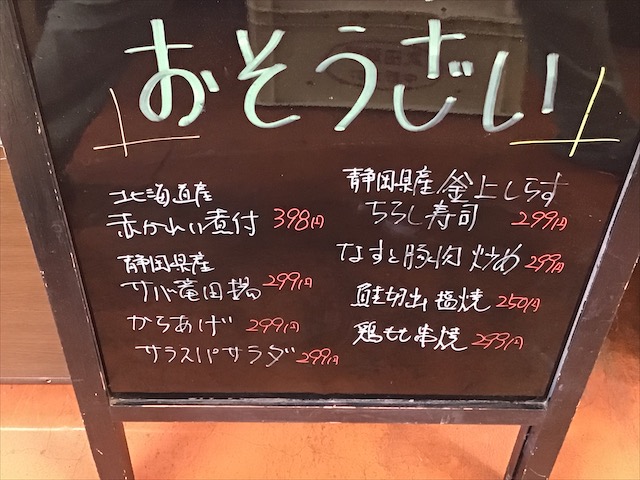 おそうざい
北海道産
赤かれい煮付 398円
静岡県産
サバ竜田揚 299円
からあげ 299円
サラスパサラダ 299円
静岡県産 釜上しらす
ちらし寿司 299円
なすと豚肉炒め 299円
鮭切出塩焼 250円
鶏もも串焼 299円